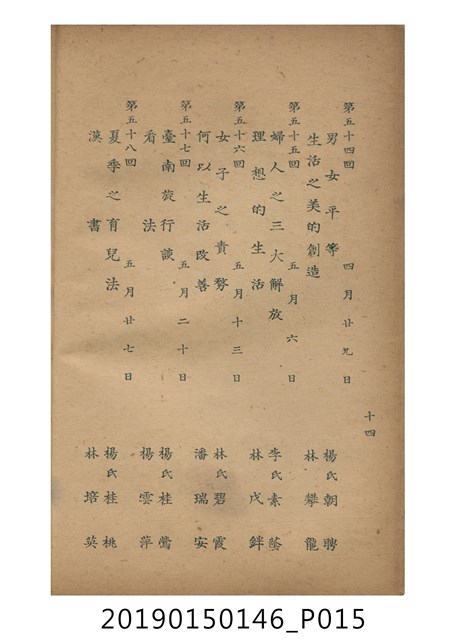 十四
第五十四回 四月廿九日
男女平等 楊氏朝聘
生活之美的創造 林攀龍
第五十五回 五月六日
婦人之三大解放 李氏素蔭
理想的生活 林戊鉡
第五十六回 五月十三日
女子之責務 林氏碧霞
何以生活改善 潘瑞安
第五十七回 五月二十日
臺南旅行談 楊氏桂鶯
看法 楊雲萍
第五十八回 五月廿七日
夏季之育兒法 楊氏桂桃
漢書 林培英
20190150146_P015